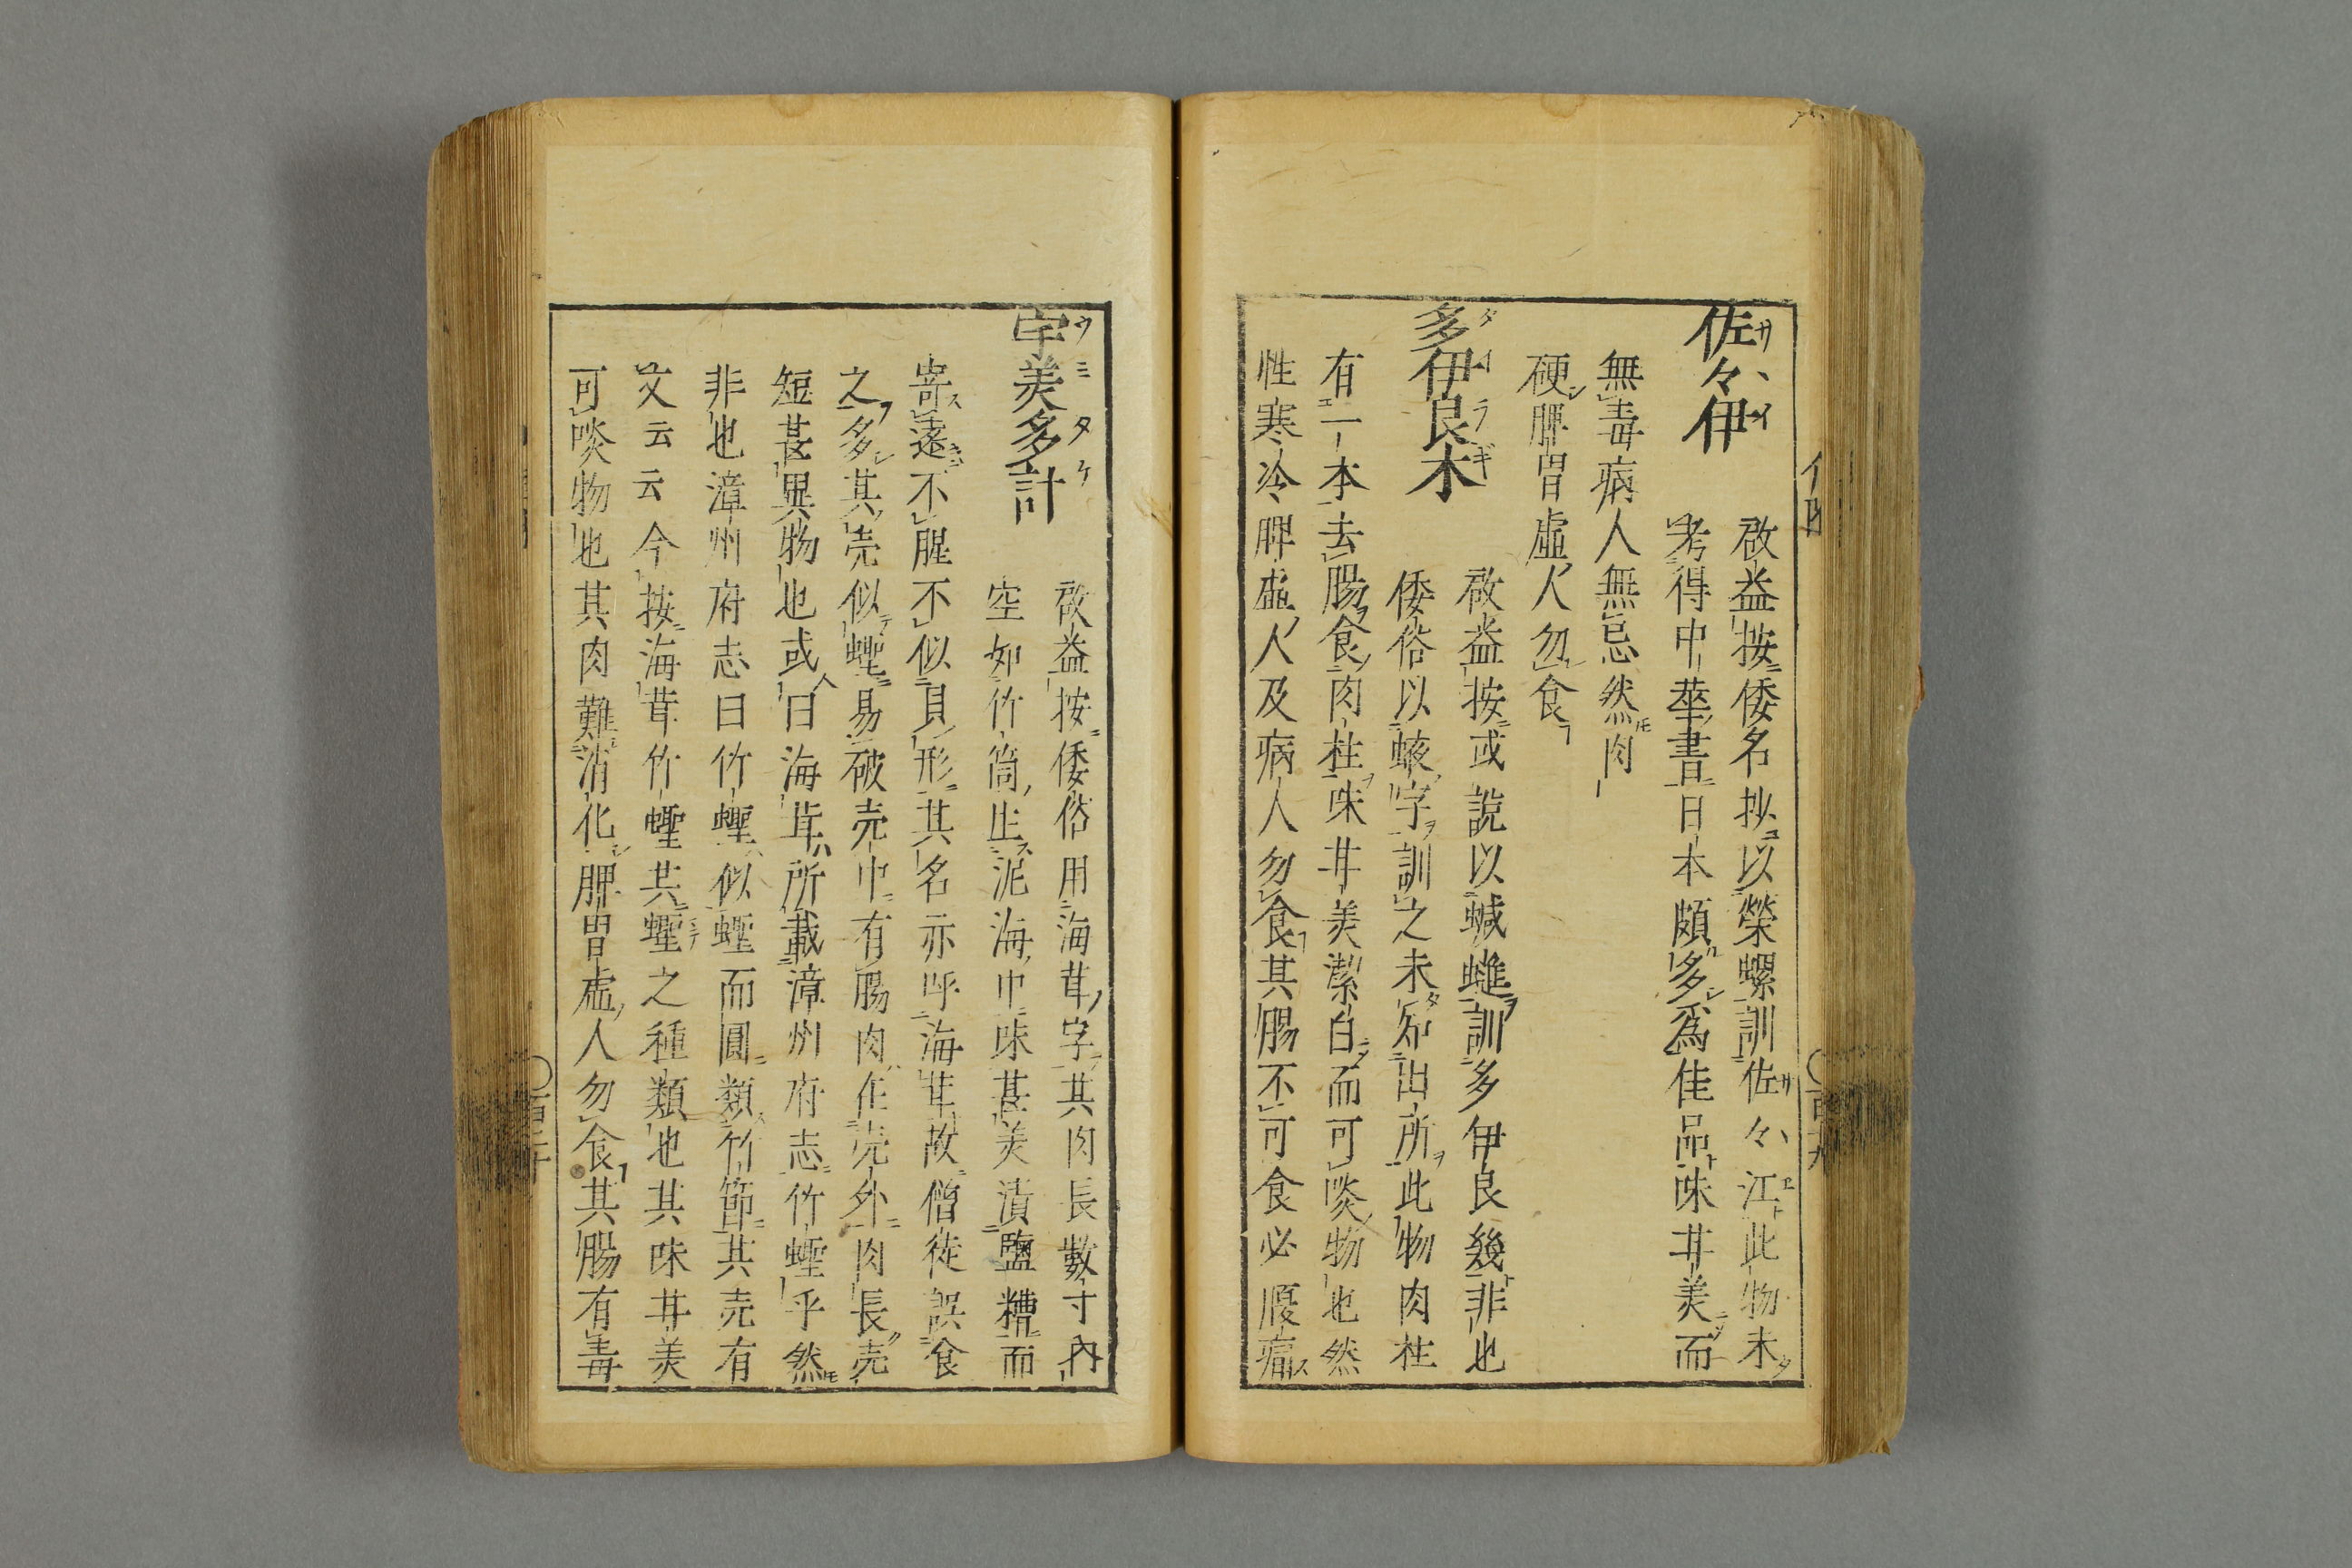 佐々伊
啟益按倭名抄以榮螺訓佐々江此物未
考得中華書日本頗多為佳品味甘美而
無毒病人無忌然肉
硬脾胃虛人勿食
多伊良木
啟益按或說以蝛䗯訓多伊良幾非也
倭俗以蛝字訓之未知出所此物肉柱
有一本去腸食肉柱味甘美潔白而可啖物也然
性寒冷脾虛人及病人勿食其腸不可食必腹痛
宇美多計
啟益按倭俗用海茸字其肉長數寸內
空如竹筒生泥海中味甚美漬鹽糟而
寄遠不腥不似貝形其名亦呼海茸故僧徒誤食
之多其壳似蟶易破壳中有腸肉在壳外肉長壳
短甚異物也或曰海茸所載漳州府志竹蟶乎然
非也漳州府志曰竹蟶似蟶而圓類竹節其壳有
文云云今按海茸竹蟶共蟶之種類也其味甘美
可啖物也其肉難消化脾胃虛人勿食其腸有毒